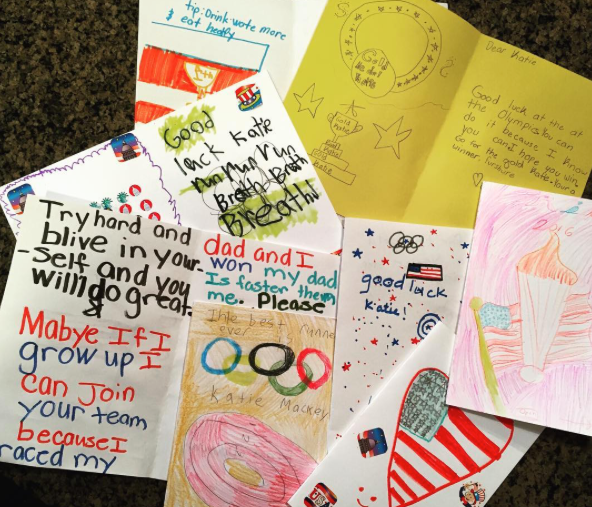 tip: Drink wate more
& eat
Good
luck Katie
run run run
Breath Breath
Breath!
Gold
Medal
Dear Katie
Good luck at the at
the Olympics. You can
do it because I know
you can I hope you win.
Go for the gold Katie. Your a
winner.
Try hard and
blive in your
-self and you
will do great.
Mabye If I
grow up I
can join
your team
because I
raced my
dad and I
won my dad
Is faster then
me. Please
good luck
Katie!
The best runner
ever
Katie Mackey
2016